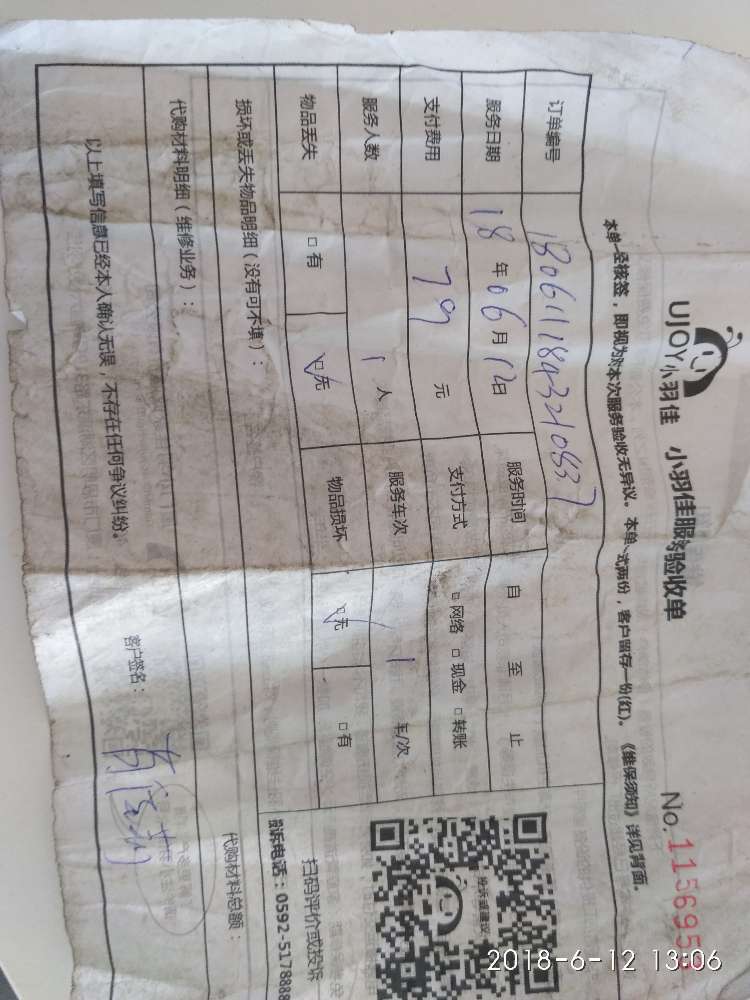 UJOY小羽佳 小羽佳服务验收单 No.115695
本单一经核签，即视为对本次服务验收无异议。本单一式两份，客户留存一份(红)。《维保须知》详见背面。
订单编号 1806111843210837
服务日期 18 年 06 月 12 日 服务时间 自 至 止
支付费用 79 元 支付方式 □ 网络 □ 现金 □ 转账
服务人数 1 人 服务车次 1 车/次
物品丢失 □ 有 ☑ 无 物品损坏 ☑ 无 □ 有
损坏或丢失物品明细（没有可不填）：
代购材料明细（维修业务）：
代购材料总额：
以上填写信息已经本人确认无误，不存在任何争议纠纷。
客户签名：
扫码评价或投诉
投诉电话：0592-5178888
2018-6-12 13:06